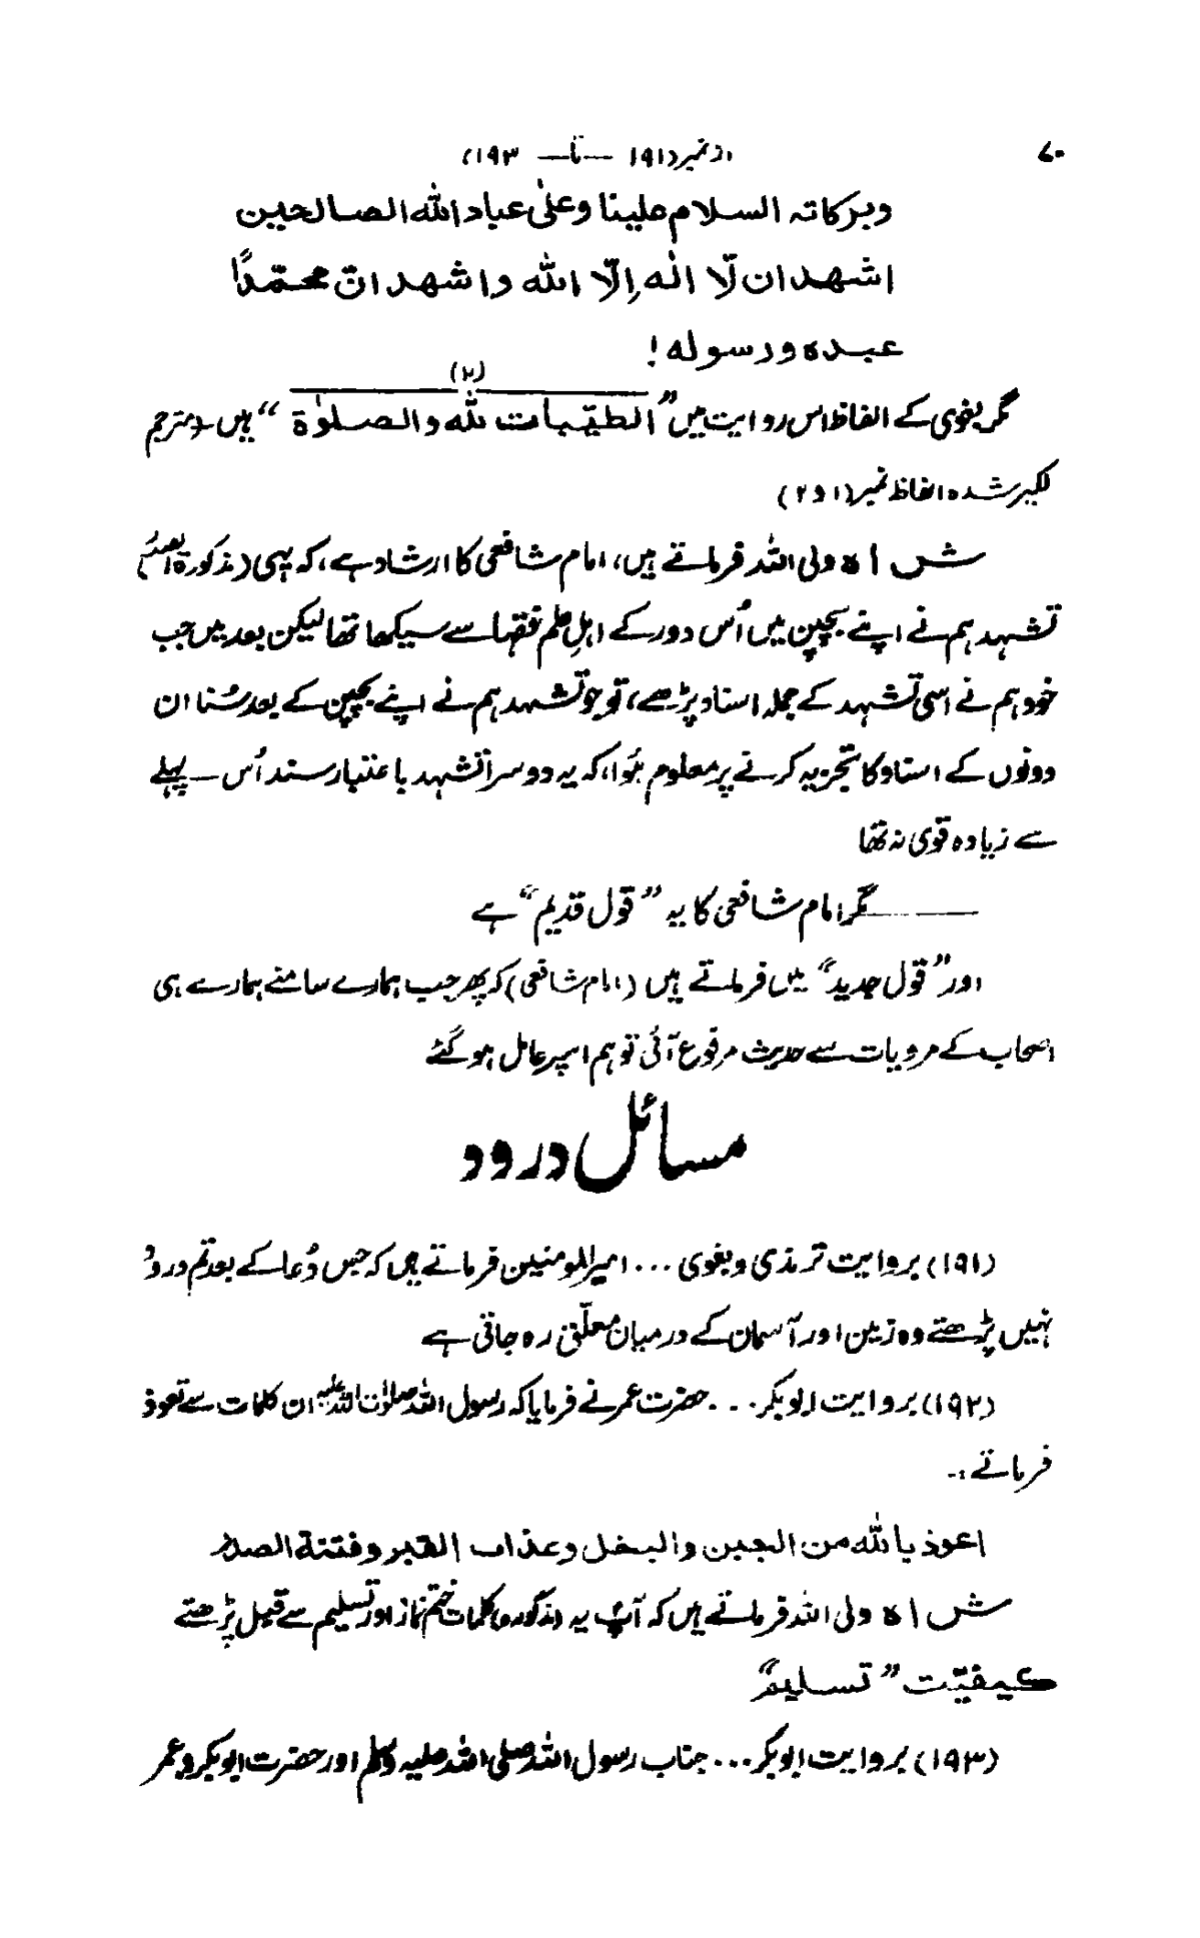 ۷۰ از نمبر (۱۹۱ — تا — ۱۹۳)
وبرکاتہ السلام علینا وعلیٰ عباد اللہ الصالحین
اشھد ان لّا الٰہ اِلّا اللہ واشھد انّ محمّدًا
عبدہ ورسولہ!
(۲)
مگر بغوی کے الفاظ اس روایت میں ”الطیّبات للہ والصلوٰۃ“ ہیں۔ (مترجم
لکیر شدہ الفاظ نمبر (۱ و ۲)
شاہ ولی اللہ فرماتے ہیں، امام شافعی کا ارشاد ہے، کہ یہی (مذکورۃ الصدر)
تشہد ہم نے اپنے بچپن میں اُس دور کے اہلِ علم فقہا سے سیکھا تھا لیکن بعد میں جب
خود ہم نے اسی تشہد کے جملہ اسناد پڑھے، تو جو تشہد ہم نے اپنے بچپن کے بعد سُنا ان
دونوں کے اسناد کا تجزیہ کرنے پر معلوم ہُوا، کہ یہ دوسرا تشہد باعتبار سند اُس — پہلے
سے زیادہ قوی نہ تھا
—— مگر امام شافعی کا یہ ”قول قدیم“ ہے
اور ”قول جدید“ میں فرماتے ہیں (امام شافعی) کہ پھر جب ہمارے سامنے ہمارے ہی
اصحاب کے مرویات سے حدیث مرفوع آئی تو ہم اسپر عامل ہو گئے
مسائل درود
(۱۹۱) بروایت ترمذی و بغوی ... امیرالمومنین فرماتے ہیں کہ جس دُعا کے بعد تم درود
نہیں پڑھتے وہ زمین اور آسمان کے درمیان معلّق رہ جاتی ہے
(۱۹۲) بروایت ابوبکر ... حضرت عمر نے فرمایا کہ رسول اللہ صلوٰت اللہ علیہ ان کلمات سے تعوذ
فرماتے :-
اعوذ باللہ من الجبن والبخل وعذاب القبر وفتنۃ الصدر
شاہ ولی اللہ فرماتے ہیں کہ آپؐ یہ (مذکورہ) کلمات ختم نماز اور تسلیم سے قبل پڑھتے
کیفیّت ”تسلیم“
(۱۹۳) بروایت ابوبکر ... جناب رسول اللہ صلی اللہ علیہ وسلم اور حضرت ابوبکر و عمر